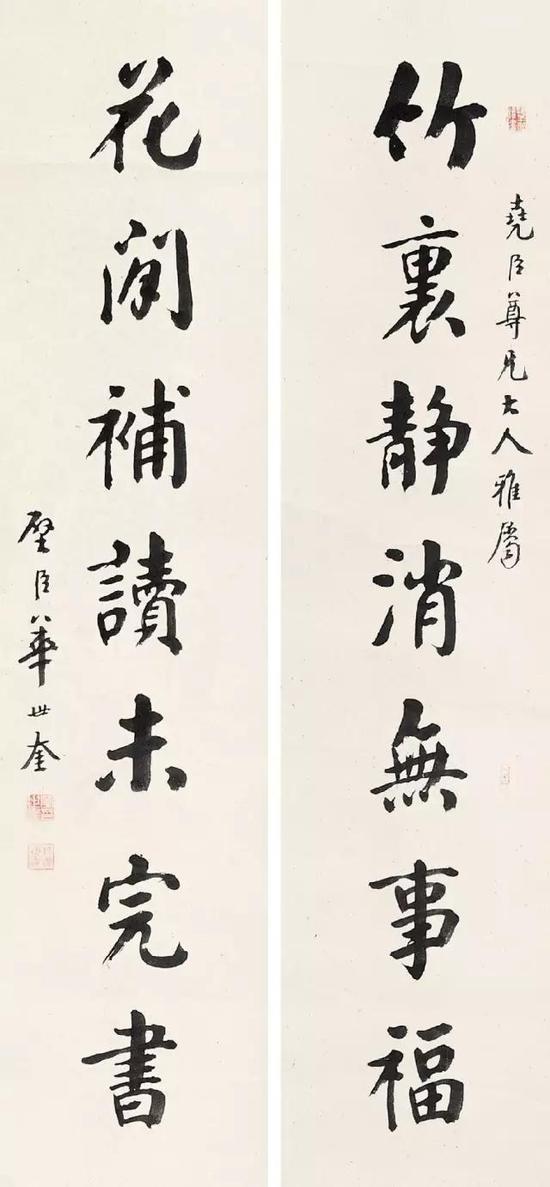 堯臣尊兄大人雅屬
竹裏靜消無事福
花間補讀未完書
璧臣華世奎